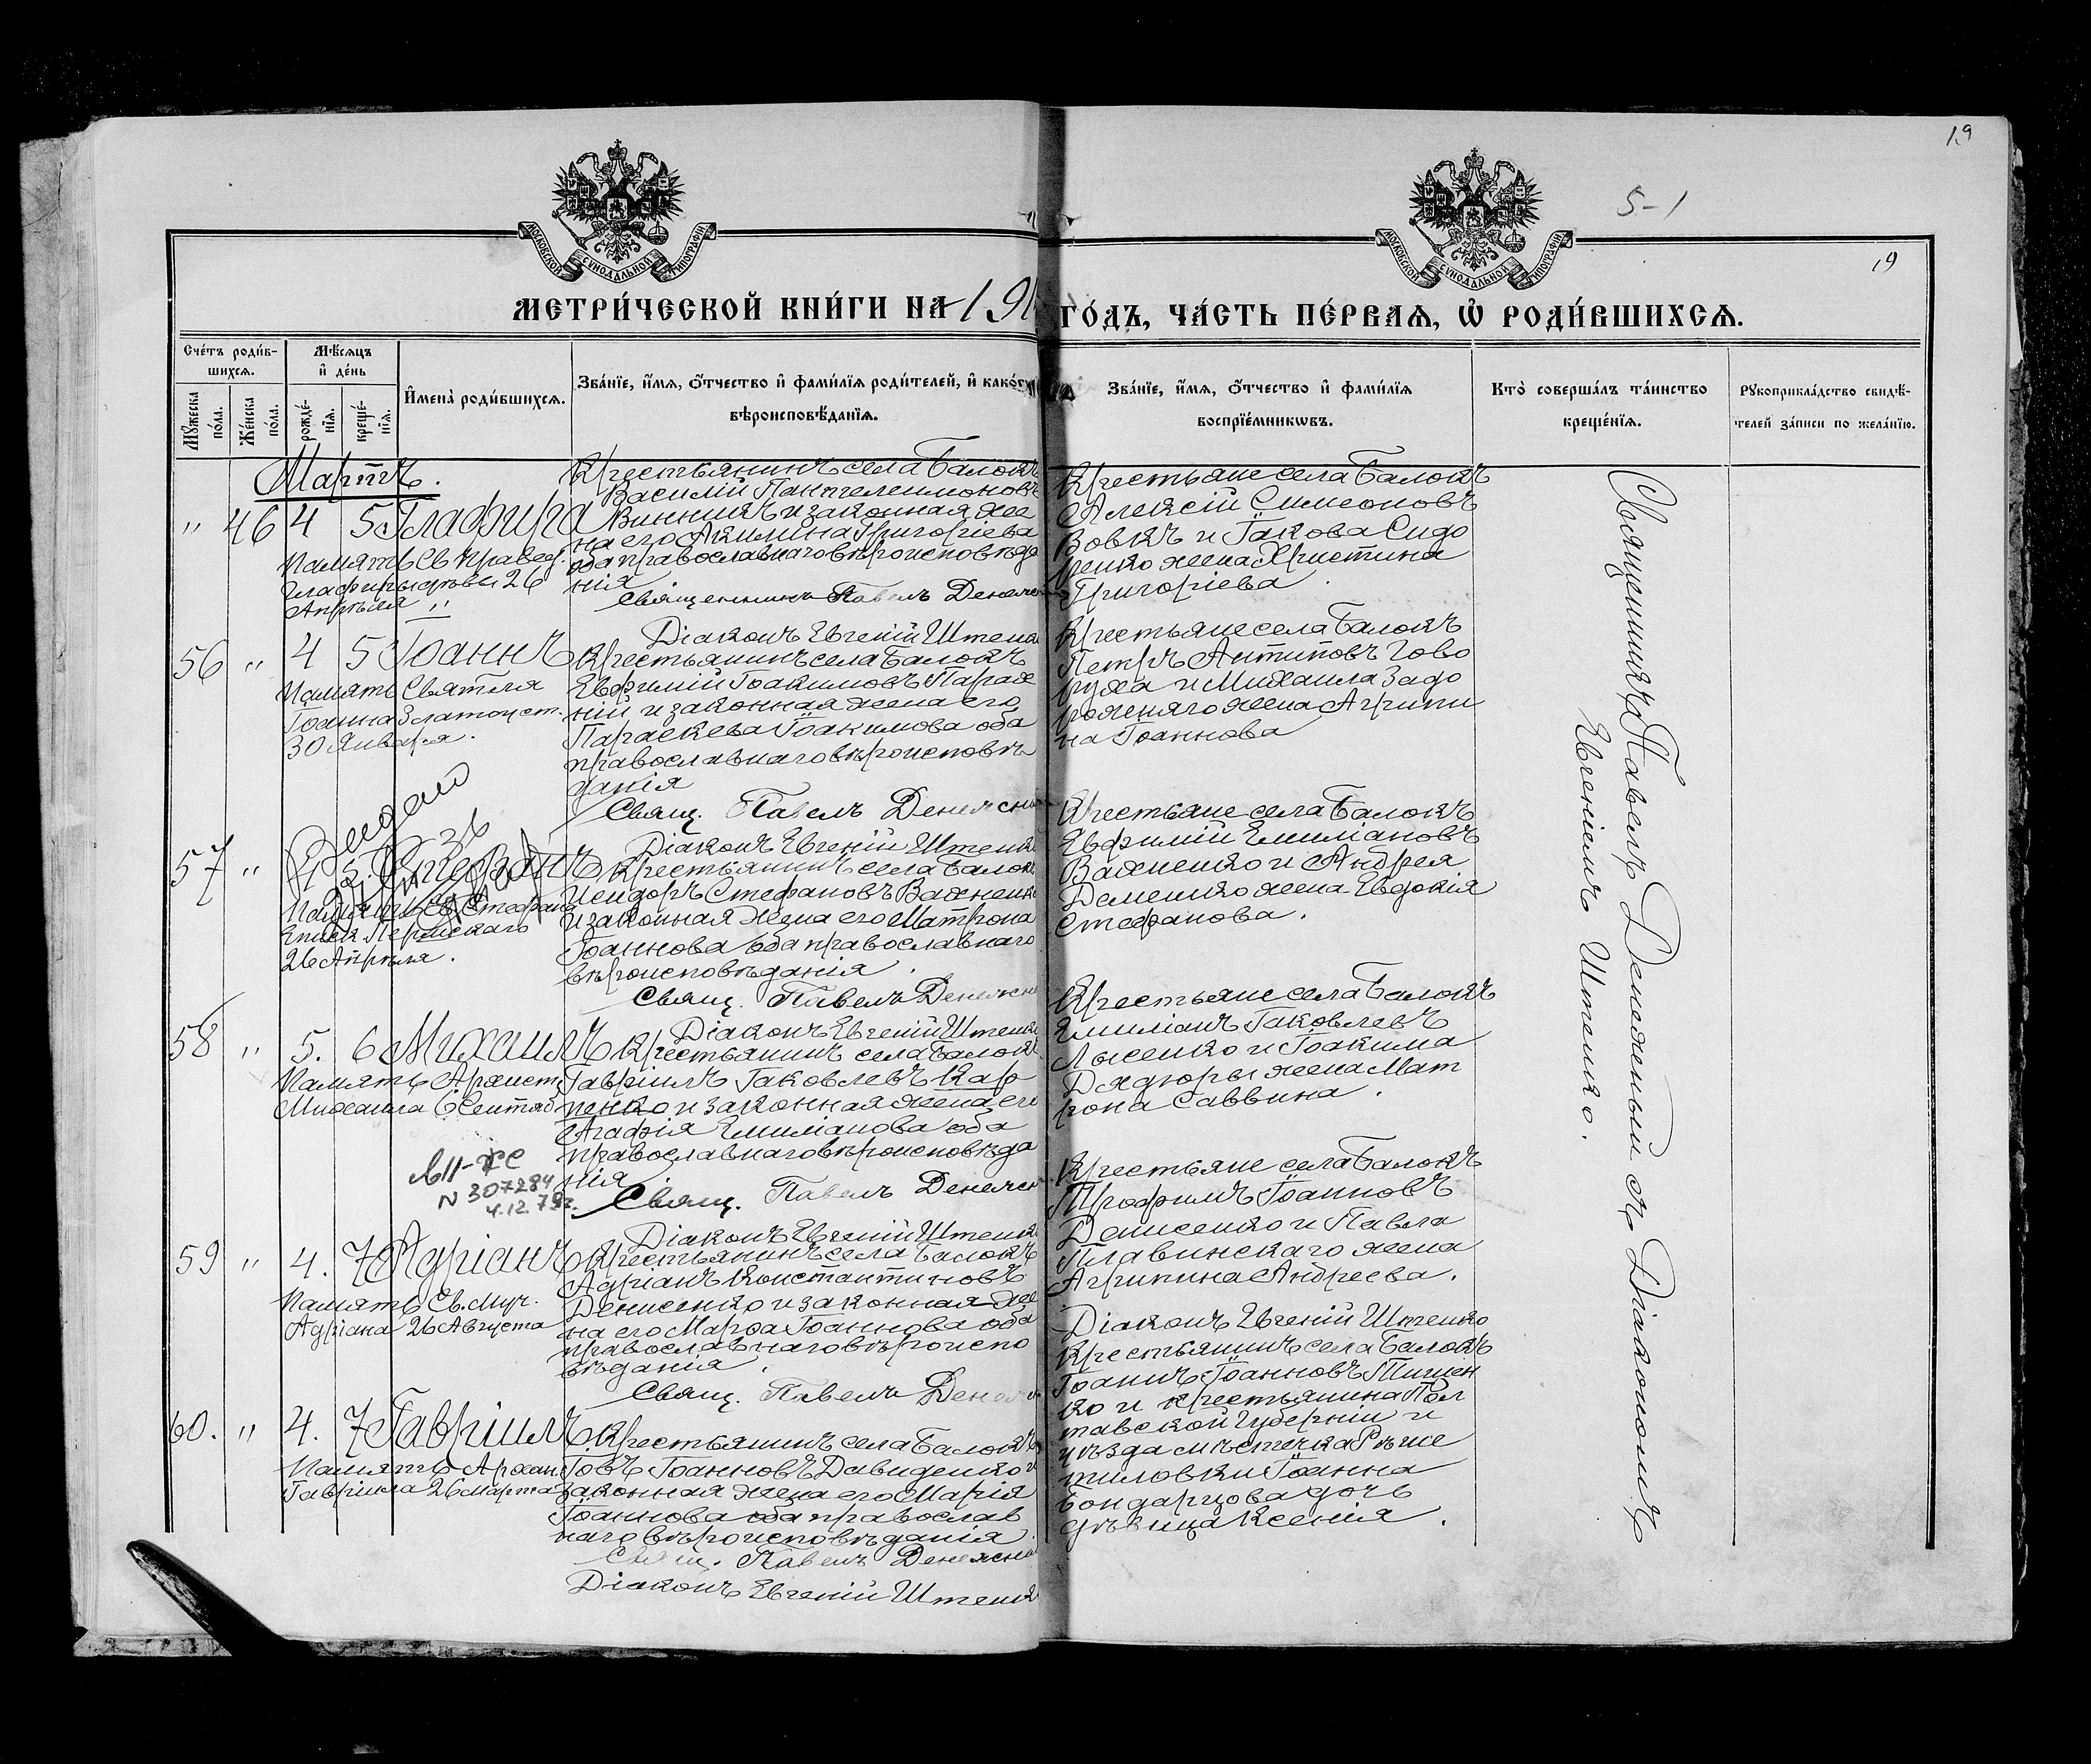 19
5-1
19
МОСКОВСКОЙ СѴНОДАЛЬНОЙ ТИПОГРАФІИ
МОСКОВСКОЙ СѴНОДАЛЬНОЙ ТИПОГРАФІИ
МЕТРИ́ЧЕСКОЙ КНИ́ГИ НА 191
ГО́ДЪ, ЧА́СТЬ ПЕ́РВАѦ, Ѡ҆ РОДИ́ВШИХСѦ.
Сче́тъ роди́в-
шихсѧ.
Мꙋ́жеска по́ла.
Же́нска по́ла.
Мѣ́сѧцъ
и҆ де́нь
рожде́-
нїѧ.
креще́-
нїѧ.
И҆мена̀ роди́вшихсѧ.
Зва́нїе, и҆́мѧ, ѻ҆́тчество и҆ фами́лїѧ роди́телей, и҆ како́гѡ
вѣроисповѣ́данїѧ.
Зва́нїе, и҆́мѧ, ѻ҆́тчество и҆ фами́лїѧ
воспрїе́мникѡвъ.
Кто̀ соверша́лъ та́инство
креще́нїѧ.
Рꙋкоприкла́дство свидѣ́-
телей за́писи по жела́нїю.
Мартъ.
" 46 4 5 Глафира
Память Св. правед.
Глафиры дѣвы 26
Апрѣля "
Крестьянинъ села Балокъ
Василій Пантелеимоновъ
Винникъ и законная же
на его Акилина Григоріева
оба православнаго вѣроисповѣда
нія
Священникъ Павелъ
Діаконъ Евгеній
Крестьяне села Балокъ
Алексій Симеоновъ
Вовкъ и Іакова Сидо
ренко жена Христина
Григоріева
56 " 4 5 Іоаннъ
Память Святителя
Іоанна Златоуст.
30 Января.
Крестьянинъ села Балокъ
Евфимій Іоакимовъ
и законная жена его
Параскева Іоакимова оба
православнаго вѣроисповѣ
данія
Свящ. Павелъ
Діаконъ Евгеній
Крестьяне села Балокъ
Петръ Антиповъ Гово
руха и Михаила Задо
рожняго жена Агрипи
на Іоаннова
57 " 4 5 Стефанъ
Память Св. Стефана
Еписк. Пермскаго
26 Апрѣля.
Крестьянинъ села Балокъ
Исидоръ Стефановъ Важненко
и законная жена его Матрона
Іоаннова оба православнаго
вѣроисповѣданія.
Свящ. Павелъ
Діаконъ Евгеній
Крестьяне села Балокъ
Евфимій Емиліановъ
Важненко и Андрея
Деменко жена Евдокія
Стефанова.
58 " 5. 6 Михаилъ
Память Архист.
Михаила 6 Сентяб
N 307284
4.12.79г.
Крестьянинъ села Балокъ
Гавріилъ Іаковлевъ Кар
пенко и законная жена его
Агафія Емиліанова оба
православнаго вѣроисповѣда
нія
Свящ. Павелъ
Діаконъ Евгеній
Крестьяне села Балокъ
Емиліанъ Іаковлевъ
Лысенко и Іоакима
Дядюры жена Мат
рона Саввина.
59 " 4. 7 Адріанъ
Память Св. Муч.
Адріана 26 Августа
Крестьянинъ села Балокъ
Адріанъ Константиновъ
Денисенко и законная же
на его Марфа Іоаннова оба
православнаго вѣроиспо
вѣданія.
Свящ. Павелъ
Крестьяне села Балокъ
Трофимъ Іоанновъ
Денисенко и Павла
Плавинскаго жена
Агрипина Андреева.
Діаконъ Евгеній Штепко
60. " 4. 7 Гавріилъ
Память Архан.
Гавріила 26 Марта
Крестьянинъ села Балокъ
Іовъ Іоанновъ Давиденко и
законная жена его Марія
Іоаннова оба православ
наго вѣроисповѣданія.
Свящ. Павелъ
Діаконъ Евгеній
Крестьянинъ села Балокъ
Іоаннъ Іоанновъ Тищен
ко и крестьянина Пол
тавской губерніи и
уѣзда мѣстечка Рѣше
тиловки Іоанна
Бондарцова дочь
дѣвица Ксенія.
Священникъ Павелъ Денежный съ Діакономъ
Евгеніемъ Штепко.